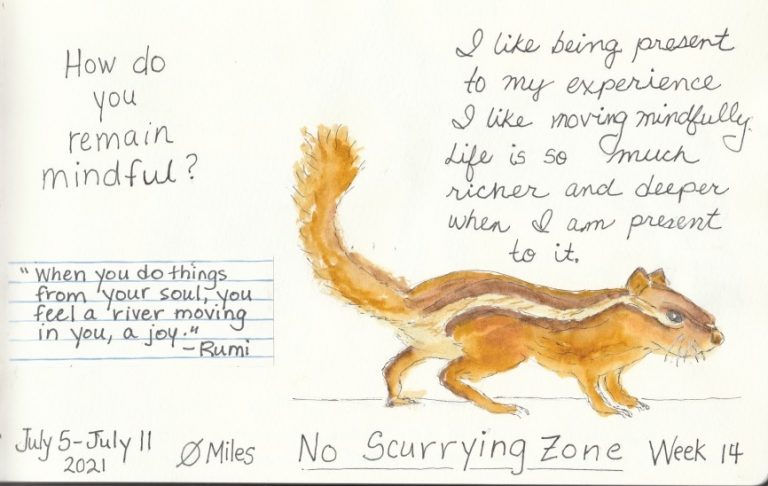 How do
you
remain
mindful?
I like being present
to my experience
I like moving mindfully.
Life is so much
richer and deeper
when I am present
to it.
"When you do things
from your soul, you
feel a river moving
in you, a joy."
-Rumi
July 5-July 11
2021
Ø Miles
No Scurrying Zone
Week 14